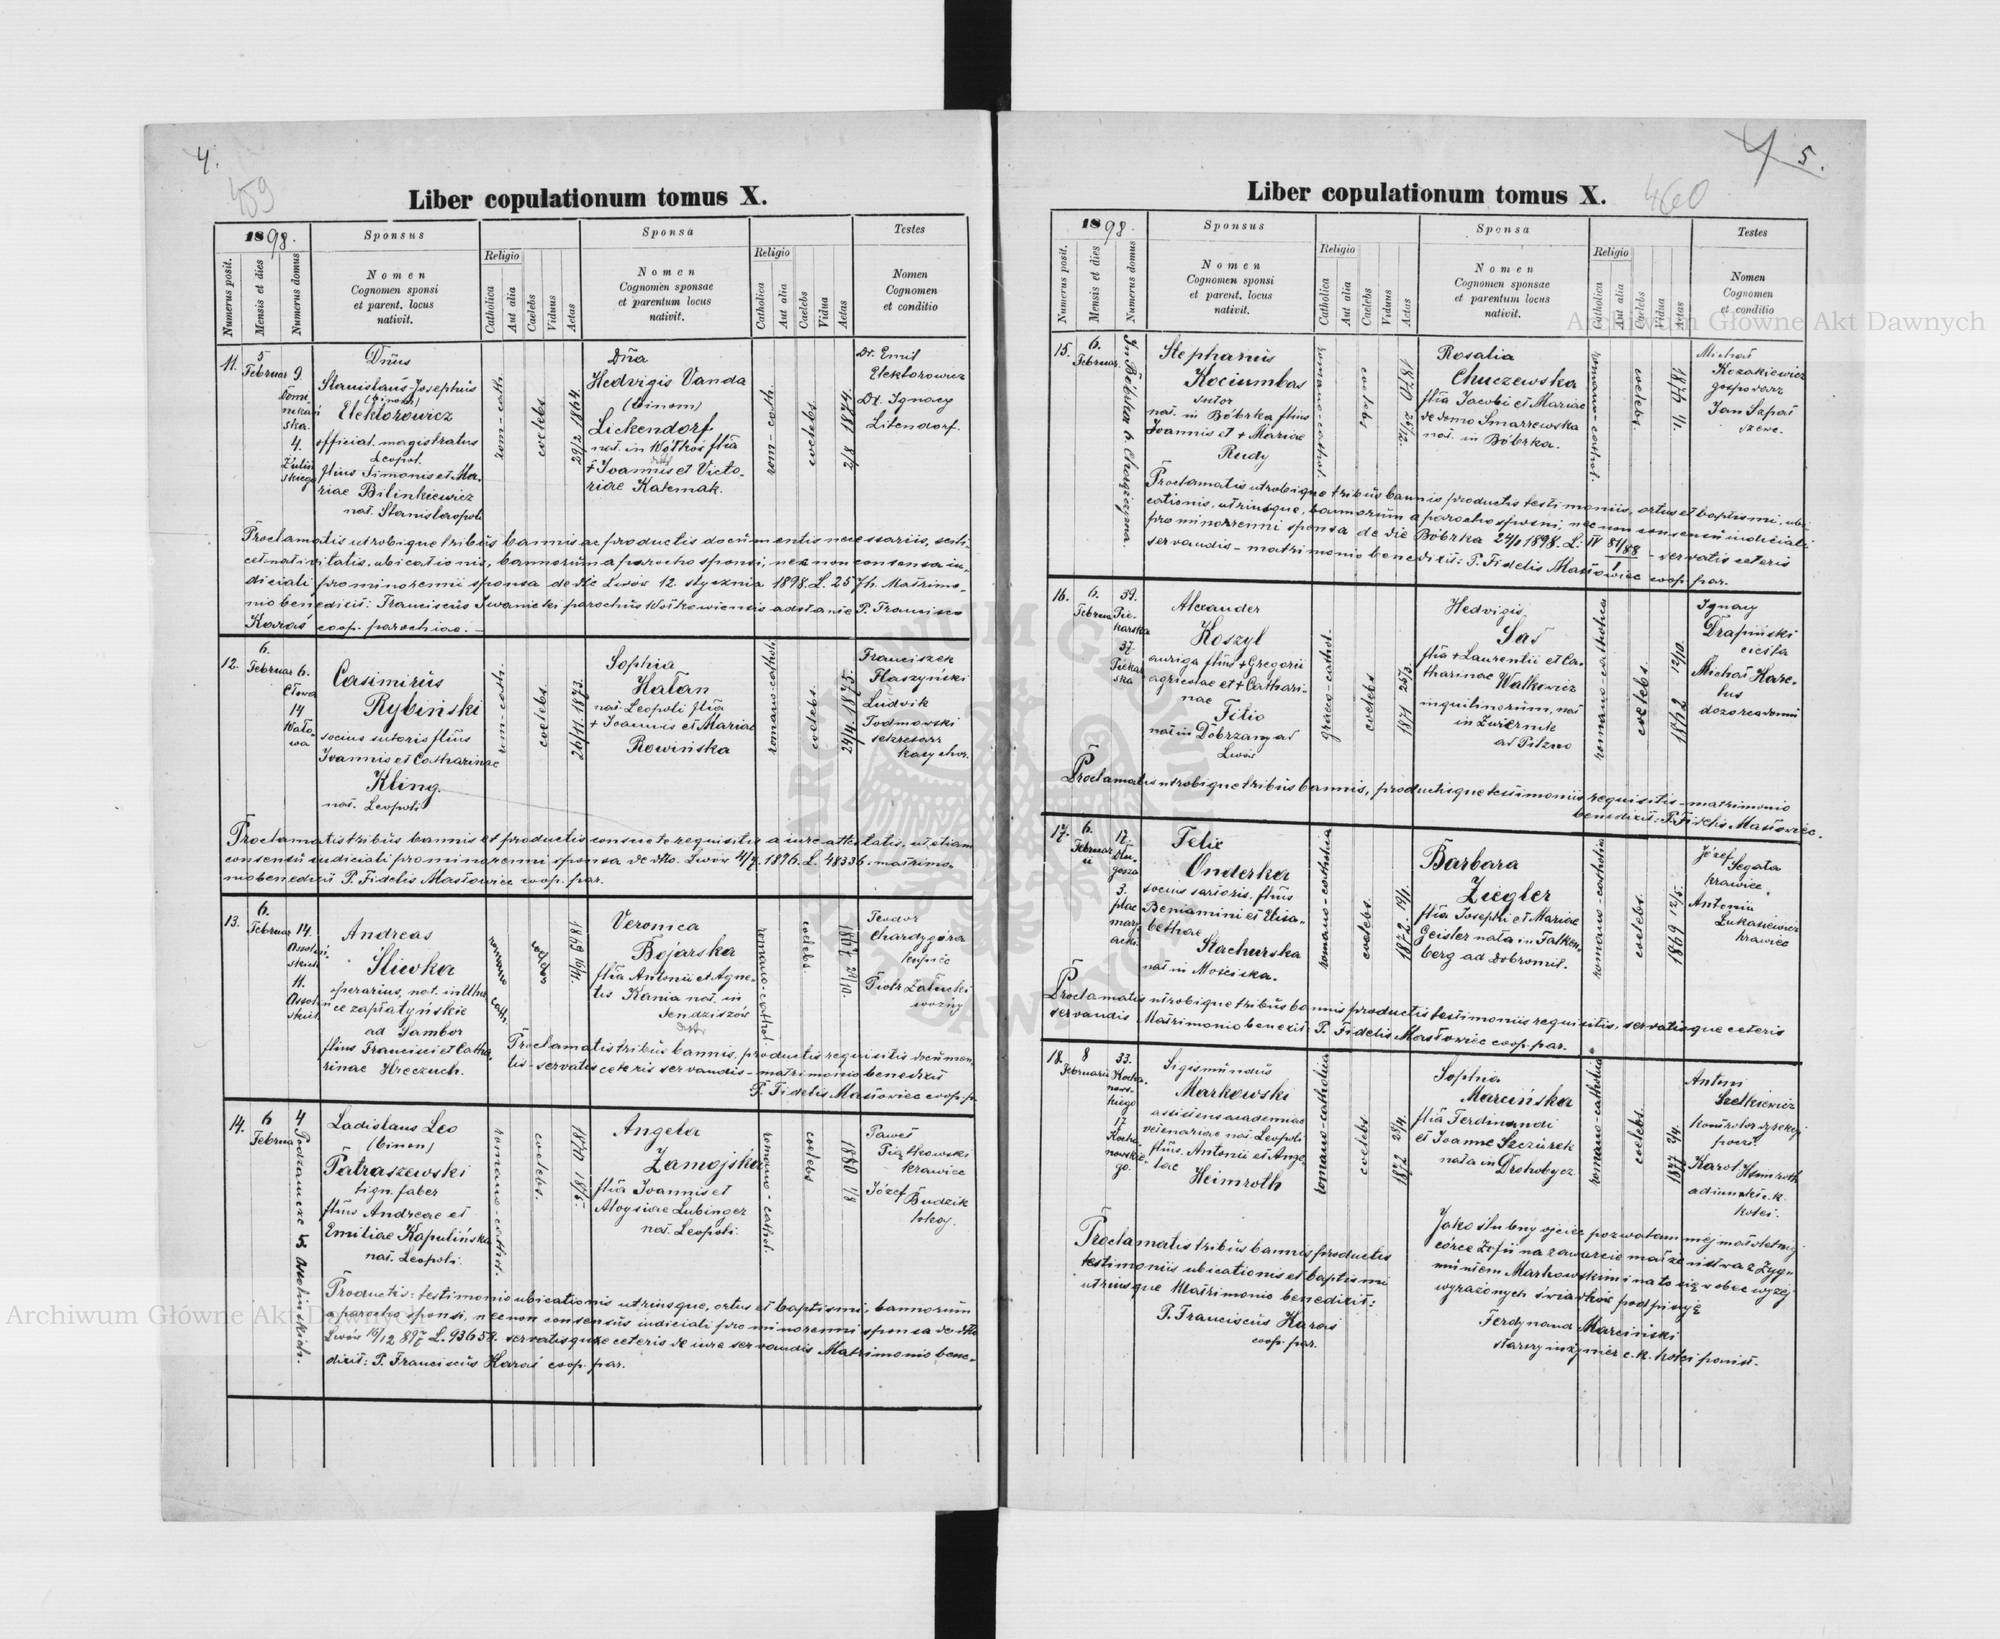 4.
459
Liber copulationum tomus X.
1898.
Sponsus
Sponsa
Testes
Numerus posit.
Mensis et dies
Numerus domus
Nomen
Cognomen sponsi
et parent. locus
nativit.
Religio
Catholica
Aut alia
Caelebs
Viduus
Aetas
Nomen
Cognomen sponsae
et parentum locus
nativit.
Religio
Catholica
Aut alia
Caelebs
Vidua
Aetas
Nomen
Cognomen
et conditio
11.
5
Februar
9.
4.
Dnus
Stanislaus-Josephus
(binom)
Elektorowicz
official. magistratus
Leopol.
filius Simonis et Ma-
riae Bilinkiewicz
nat. Stanislaopoli
rom-cath.
coelebs
29/2 1864
Dna
Hedvigis Vanda
(binom)
Lickendorf
nat. in Wołków filia
+ Joannis et Victo-
riae Kalemak.
rom-cath.
coelebs.
2/8 1874.
Dr. Emil
Elektorowicz
Dr. Ignacy
Litendorf.
Proclamatis utrobique tribus bannis ac productis documentis necessariis, scili-
cet nativitatis, ubicationis, bannorum a parocho sponsi, nec non consensu iu-
diciali pro minorenni sponsa de dto Lwów 12. stycznia 1898. L. 2576. Matrimo-
nio benedixit: Franciscus Iwanicki parochus Wołkowiensis adstante P. Francisco
Karaś coop. parochiae.
12.
6.
Februar
6.
Cłowa
14
Wało-
wa
Casimirus
Rybiński
socius sutoris filius
Joannis et Catharinae
Kling.
nat. Leopoli
rom-cath.
coelebs.
26/11. 1873.
Sophia
Hałan
nat. Leopoli filia
+ Joannis et Mariae
Rowińska
romano-cathol.
coelebs.
29/4. 1875.
Franciszek
Flaszyński
Ludwik
Todmowski
sekretarz
kasy chor.
Proclamatis tribus bannis et productis consueto requisitis a iure attestatis, ut etiam
consensu iudiciali pro minorenni sponsa de dto. Lwów 4/7. 1896. L. 48336. matrimo-
nio benedixit P. Fidelis Masłowiec coop. par.
13.
6.
Februar
14.
Ossoliń-
skich
11.
Andreas
Śliwka
operarius, nat. in Uher-
ce zapłatyńskie
ad Sambor
filius Francisci et Catha-
rinae Hreczuch.
romano cath.
coelebs
1869 16/11.
Veronica
Bojarska
filia Antonii et Agne-
tis Kania nat. in
Sendziszów
romano-cathol.
coelebs.
1867. 29/10.
Teodor
Chardzyóra
kupiec
Piotr Załucki
woźny
Proclamatis tribus bannis, productis requisitis documen-
tis - servatis ceteris servandis - matrimonio benedixit
P. Fidelis Masłowiec coop. p.
14.
6
Februa
4 Podzamcze 5 Ossolińskich.
Ladislaus Leo
(binom)
Patraszewski
lign. faber
filius Andreae et
Emiliae Kapulińska
nat. Leopoli.
romano-cathol.
coelebs.
1870 18/6.
Angela
Zamojska
filia Joannis et
Aloysiae Lubinger
nat. Leopoli.
romano-cathol.
coelebs
1880 1/8
Paweł
Piątkowski
krawiec
Józef Budzik
lokaj.
Productis: testimonio ubicationis utriusque, ortus et baptismi, bannorum
a parocho sponsi, nec non consensus iudiciali pro minorenni sponsa de dto
Lwów 10/12 897 L. 93658. servatisque ceteris de iure servandis Matrimonio bene-
dixit: P. Franciscus Karaś coop. par.
5.
460
Liber copulationum tomus X.
1898.
Sponsus
Sponsa
Testes
Numerus posit.
Mensis et dies
Numerus domus
Nomen
Cognomen sponsi
et parent. locus
nativit.
Religio
Catholica
Aut alia
Caelebs
Viduus
Aetas
Nomen
Cognomen sponsae
et parentum locus
nativit.
Religio
Catholica
Aut alia
Caelebs
Vidua
Aetas
Nomen
Cognomen
et conditio
15.
6.
Februar.
In Bóbrka 6. Chorążczyzna.
Stephanus
Kociumbas
sutor
nat. in Bóbrka filius
Joannis et + Mariae
Rudy
romano-cathol.
coelebs
1870 26/12.
Rosalia
Chuczewska
filia Jacobi et Mariae
de domo Smarzewska
nat. in Bóbrka.
romano-cathol.
coelebs.
Michał
Kozakiewicz
gospodarz
Jan Sapał
szewc.
Proclamatis utrobique tribus bannis productis testimoniis, ortus et baptismi, ubi-
cationis, utriusque, bannorum a parocho sponsi, nec non consensu iudiciali
pro minorenni sponsa de die Bóbrka 24/1 1898. L. IV 81/88 - servatis ceteris
servandis - matrimonio benedixit: P. Fidelis Masłowiec coop. par.
16.
6.
Februa
39.
Pie-
karska
37.
Piekar
ska
Alexander
Koszyl
auriga filius + Gregorii
agricolae et + Cathari-
nae
Filio
nat in Dobrzany ad
Lwów
graeco-cathol.
coelebs
1871 25/3.
Hedvigis
Saś
filia + Laurentii et Ca-
tharinae Walkowicz
inquilinorum, nat
in Zwiernik
ad Pilzno
romano-catholica
coelebs.
1862 12/10.
Ignacy
Drapiński
cieśla
Michał Kare-
lus
dozorca domu
Proclamatis utrobique tribus bannis, productisque testimoniis requisitis - matrimonio
benedixit: P. Fidelis Masłowiec.
17.
6.
Februar
ii
17.
Dłu-
gosza
3.
plac
mary-
acki.
Felix
Onderka
socius sartoris, filius
Beniamini et Elisa-
bethae
Stachurska
nat in Mościska.
romano-catholica
coelebs.
1872. 19/4.
Barbara
Ziegler
filia Josephi et Mariae
Geisler nata in Falken-
berg ad Dobromil.
romano-catholica
coelebs.
1869 12/5.
Józef
Segała
krawiec.
Antoni
Łukasiewicz
krawiec
Proclamatis utrobique tribus bannis productis testimoniis requisitis, servatisque ceteris
servandis Matrimonio benexit: P. Fidelis Masłowiec coop. par.
18.
8
Februarii
33.
Kocha-
nows-
kiego
17
Kocha-
nowskie-
go.
Sigismundus
Markowski
assistens academiae
veterinariae nat. Leopoli
filius. Antonii et Ange-
lae
Heimroth
romano-catholica
coelebs
1872 28/4.
Sophia
Marcińska
filia Ferdinandi
et Joanne Szczurek
nata in Drohobycz
romano-catholica
coelebs.
1877 2/4.
Antoni
Szelkiewicz
kontrolor dyrekcyi
poczt.
Karol Heimroth
adjunkt c. k.
kolei.
Proclamatis tribus bannis productis
testimoniis ubicationis et baptismi
utriusque Matrimonio benedixit:
P. Franciscus Karaś
coop. par.
Jako ślubny ojciec pozwalam mej małoletniej
córce Zofii na zawarcie małżeństwa z Zyg-
muntem Markowskim i na to się w obec wyżej
wyrażonych świadków podpisuję
Ferdynand Marciński
starszy inżynier c. k. kolei państ.
Archiwum Główne Akt Dawnych
Archiwum Główne Akt Dawnych